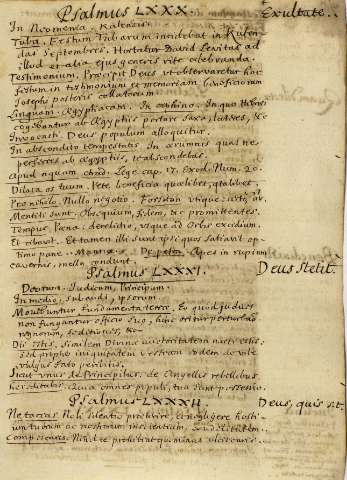 Psalmus LXXX. Exultate.
In Neomenia. Kalensis.
Tuba. Festum Tubarum incidebat in Kalen-
das Septembres. Hortatur David Levitas ad
illud et alia ejus generis rite celebranda.
Testimonium. Præcipit Deus ut observaretur hoc
festum in testimonium et memoriam beneficiorum
Josephi posteris collatorum.
Linguam. Ægyptiacam. In cophino. In quo Hebræi
cogebantur ab Ægyptiis portare saxa, lateres, &c
Invocasti. Deus populum alloquitur.
In abscondito tempestatis. In ærumnis quas
perferres ab Ægyptiis, te abscondebas.
Apud aquam Lege cap. 17. Exod. Num. 20.
Dilata os tuum. Pete beneficia quælibet,
Pro nihilo. Nullo negotio. Forsitan utique
Mentiti sunt. Obsequium, fidem, promittentes.
Tempus. Pœna: derelictio, usque ad Orbis excidium.
Et cibavit. Et tamen illi sunt ipsi quos satiavit op-
timo pane. De petra. Apes in rupium
cavernas, mella
Psalmus LXXXI. Deus stetit.
Deorum. Judicum, Principum.
In medio, subaudi, ipsorum
Movebuntur fundamenta terræ. Eo quod judices
non fungantur officio suo, hinc oritur perturbatio
seditiones, &c.
Dii estis. Similem Divinæ auctoritatem nacti estis:
sed propter iniquitatem vestram
vulgus fato peribitis.
Sicut unus de Principibus. de Angelis rebellibus
hæreditabis. Quia omnes populi, tua sunt possessio.
Psalmus LXXXII. Deus, quis sit.
Ne taceas. Noli silentio præterire, et negligere hosti-
um tuorum ac nostrorum
Compescaris. Nihil te prohibeat quominus ulciscaris.